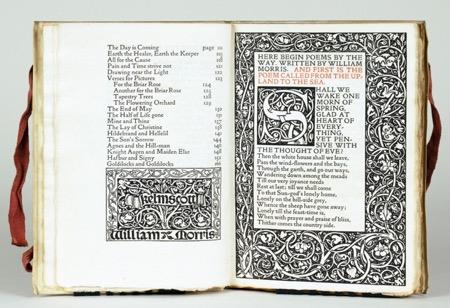 The Day is Coming page 111
Earth the Healer, Earth the Keeper 115
All for the Cause 118
Pain and Time strive not 121
Drawing near the Light 122
Verses for Pictures 123
For the Briar Rose 124
Another for the Briar Rose 125
Tapestry Trees 128
The Flowering Orchard 129
The End of May 130
The Half of Life gone 131
Mine and Thine 137
The Lay of Christine 138
Hildebrand and Hellelil 141
The Son's Sorrow 144
Agnes and the Hill-man 146
Knight Aagen and Maiden Else 148
Hafbur and Signy 151
Goldilocks and Goldilocks
Kelmscott
William Morris
HERE BEGIN POEMS BY THE
WAY. WRITTEN BY WILLIAM
MORRIS. AND FIRST IS THE
POEM CALLED FROM THE UP-
LAND TO THE SEA.
SHALL WE
WAKE ONE
MORN OF
SPRING,
GLAD AT
HEART OF
EVERY-
THING,
YET PEN-
SIVE WITH
THE THOUGHT OF EVE?
Then the white house shall we leave,
Pass the wind-flowers and the bays,
Through the garth, and go our ways,
Wandering down among the meads
Till our very joyance needs
Rest at last; till we shall come
To that Sun-god's lonely home,
Lonely on the hill-side grey,
Whence the sheep have gone away;
Lonely till the feast-time is,
When with prayer and praise of bliss,
Thither comes the country side.